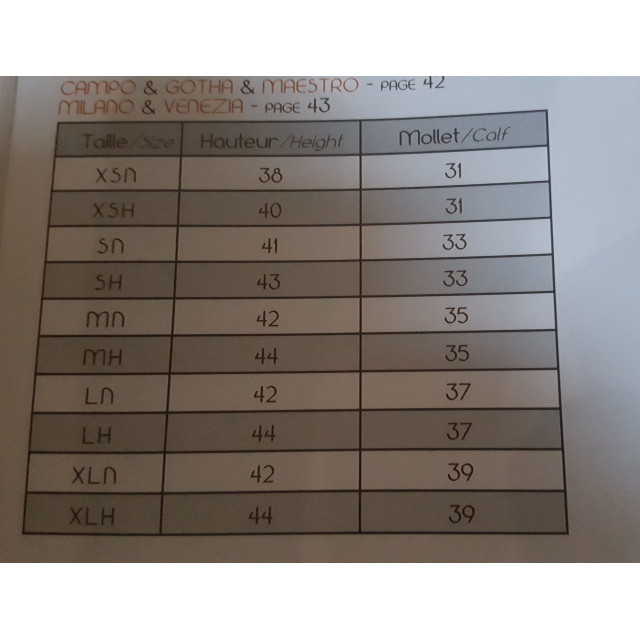 CAMPO & GOTHA & MAESTRO - PAGE 42
MILANO & VENEZIA - PAGE 43
Taille/Size Hauteur/Height Mollet/Calf
XSN 38 31
XSH 40 31
SN 41 33
SH 43 33
MN 42 35
MH 44 35
LN 42 37
LH 44 37
XLN 42 39
XLH 44 39